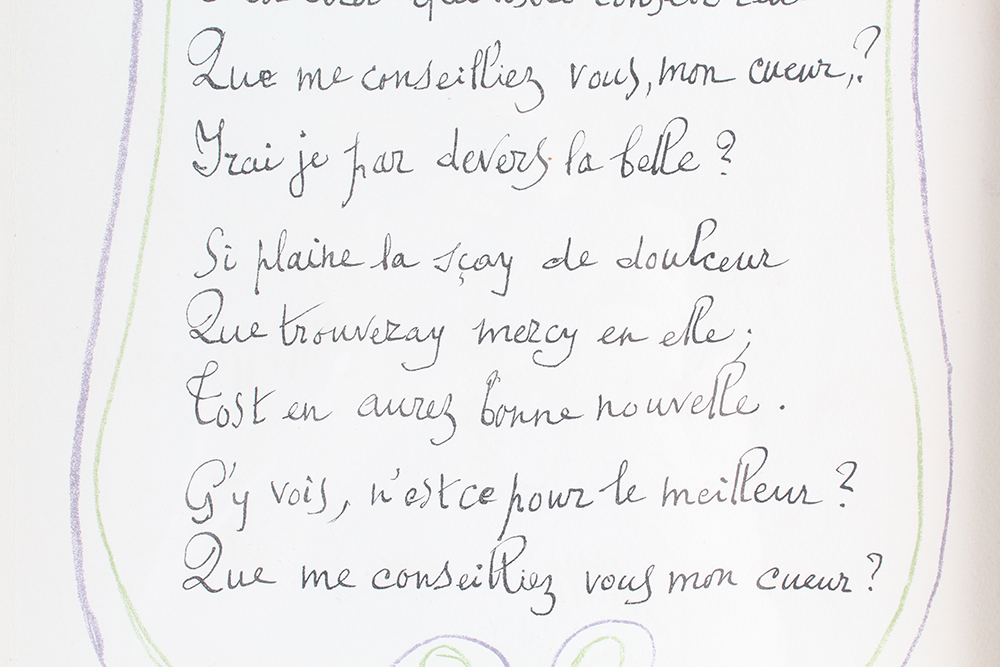 Que me conseilliez vous, mon cueur,?
Yrai je par devers la belle ?
Si plaine la sçay de doulceur
Que trouveray mercy en elle ;
Tost en aurez bonne nouvelle .
G'y vois, n'est ce pour le meilleur ?
Que me conseilliez vous mon cueur ?